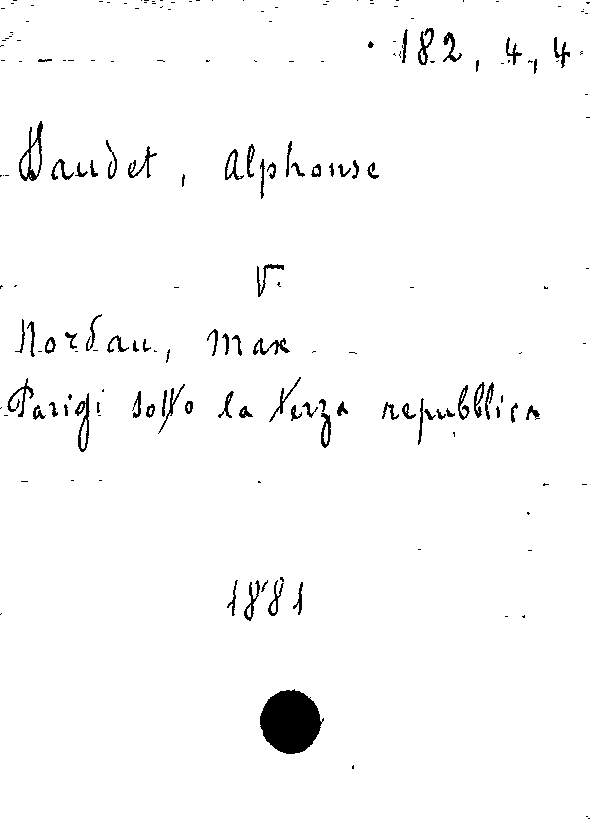 182, 4, 4
Daudet, Alphonse
V.
Nordau, Max
Parigi sotto la terza repubblica
1881